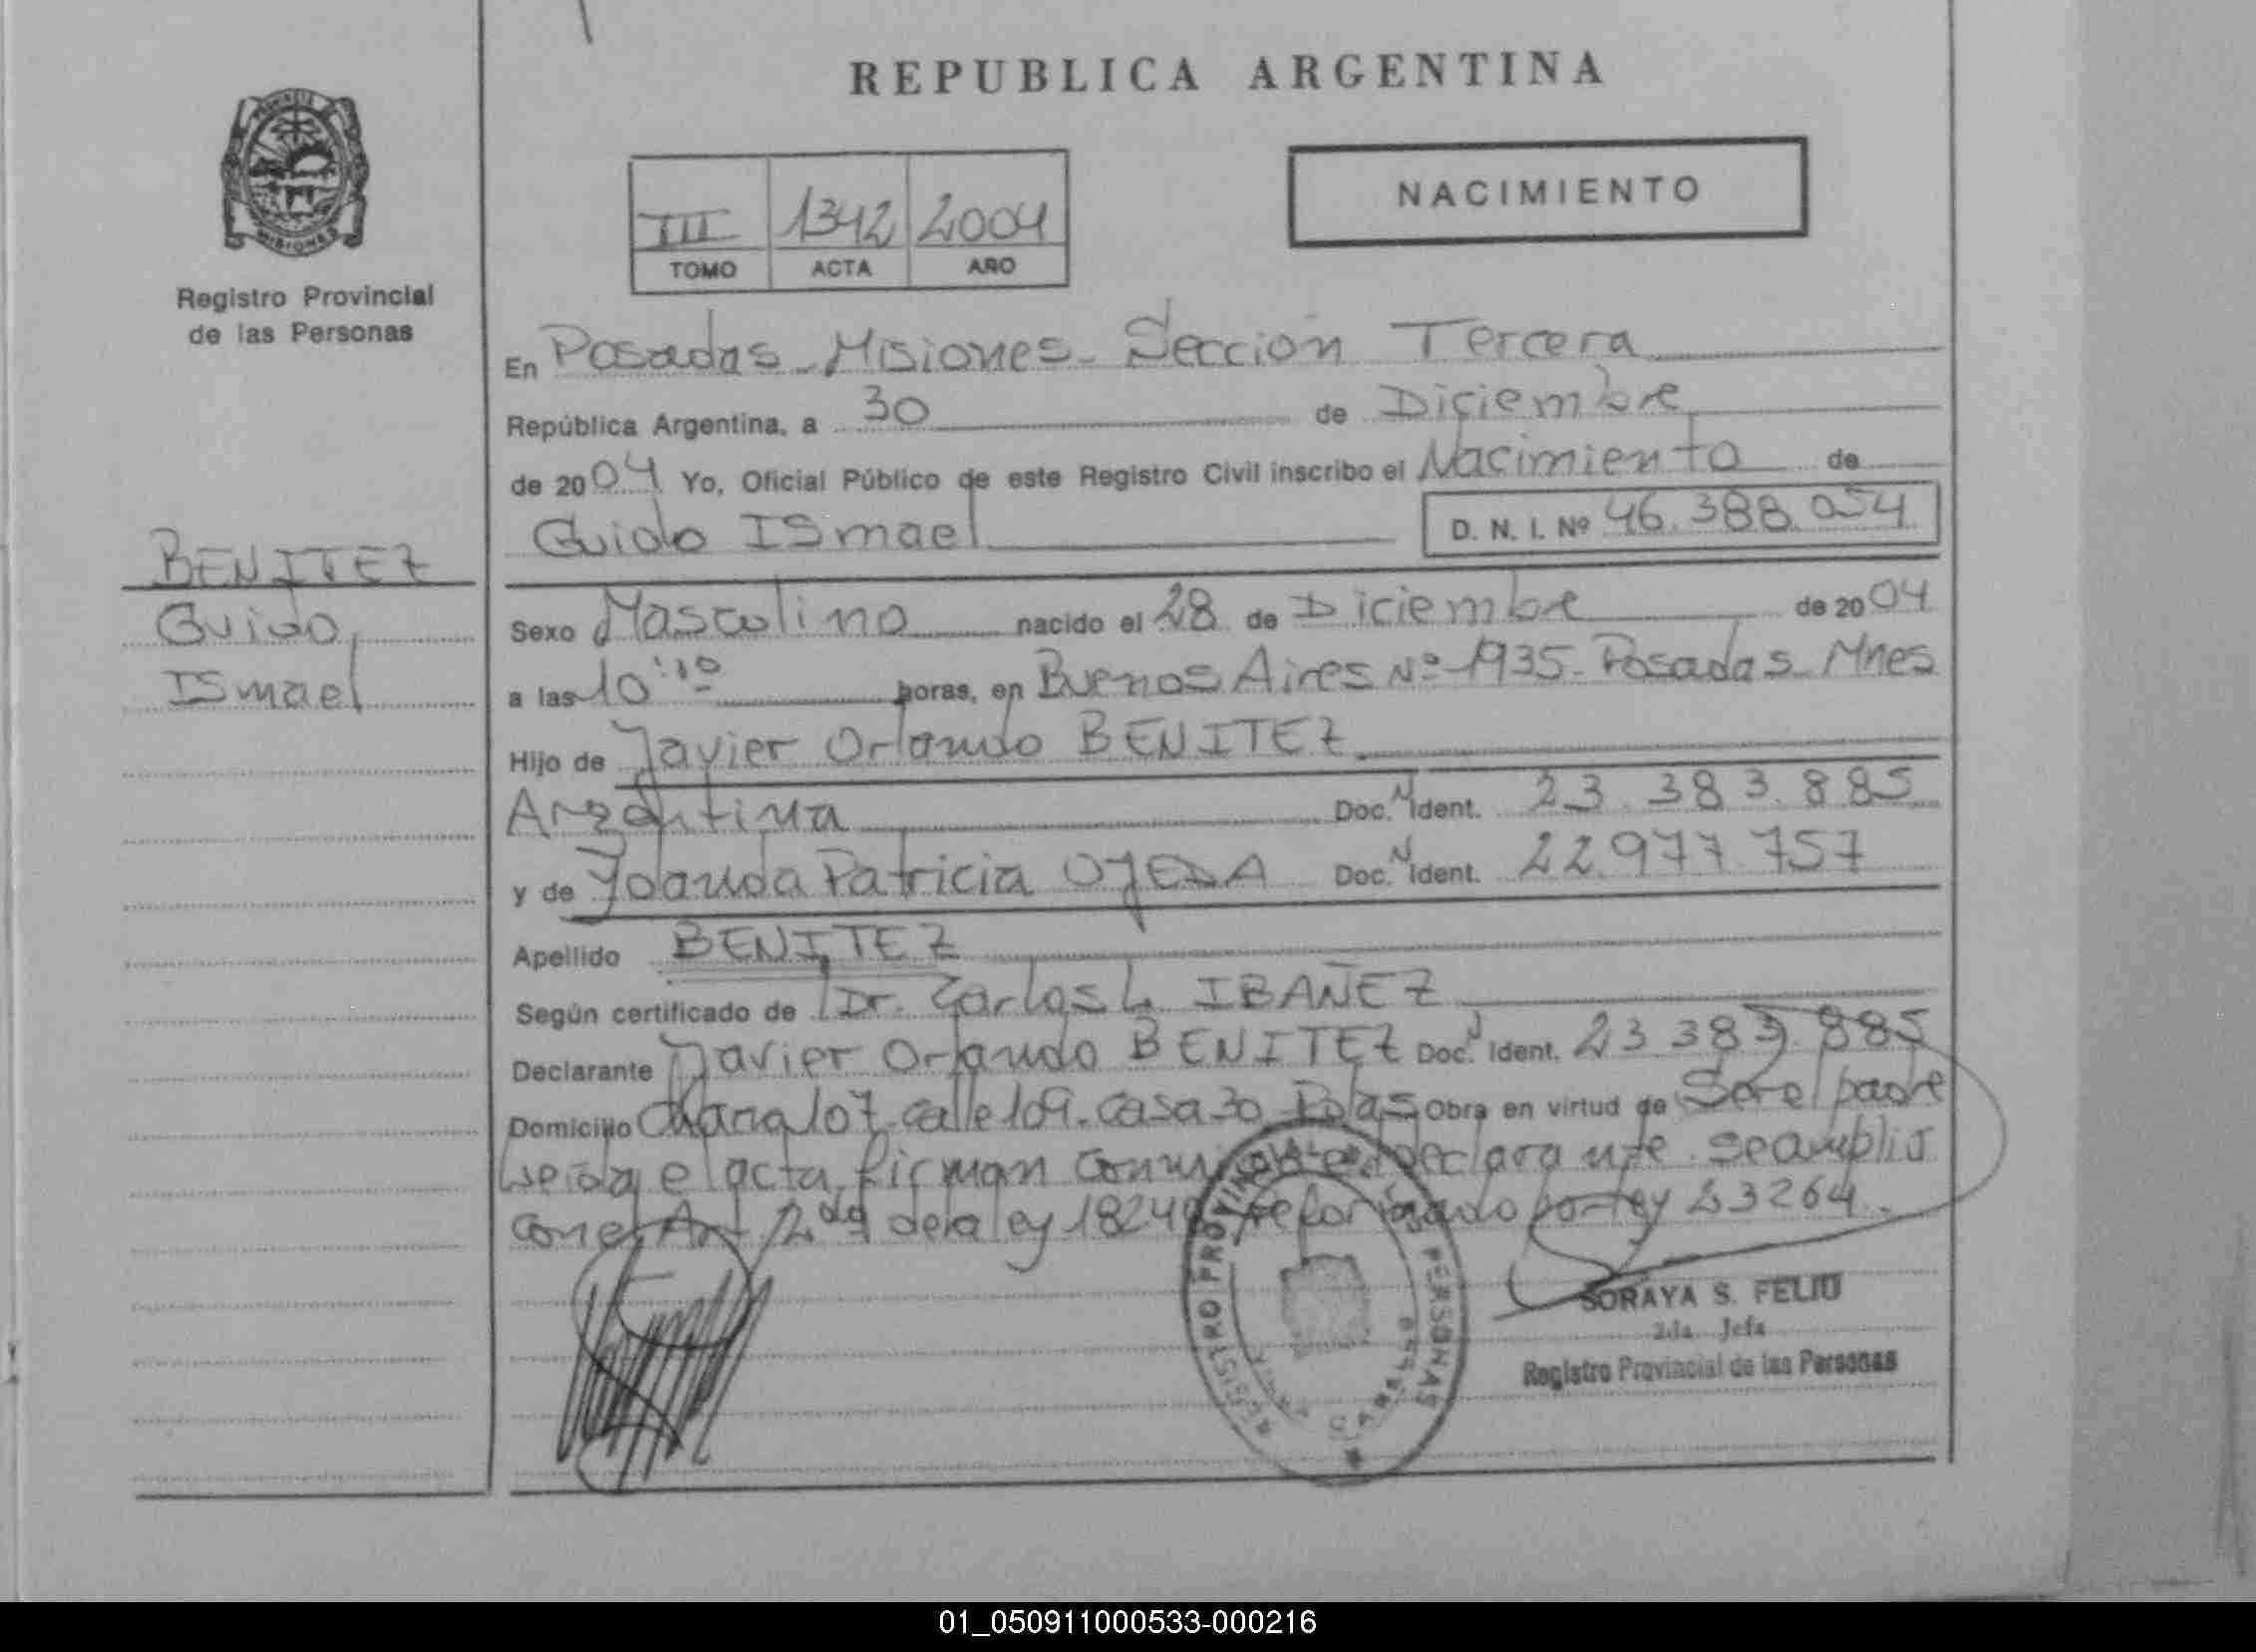 REPUBLICA ARGENTINA
PROVINCIA
MISIONES
Registro Provincial
de las Personas
III 1342 2004
TOMO ACTA AÑO
NACIMIENTO
En Posadas - Misiones - Sección Tercera
República Argentina, a 30 de Diciembre
de 2004 Yo, Oficial Público de este Registro Civil inscribo el Nacimiento de
Guido ISmael D. N. I. Nº 46.388.054
BENITEZ
Guido,
ISmael
Sexo Masculino nacido el 28 de Diciembre de 2004
a las 10:10 horas, en Buenos Aires Nº 1935 - Posadas - Mnes
Hijo de Javier Orlando BENITEZ
Argentina Doc. N Ident. 23.383.885
y de Yolanda Patricia OJEDA Doc. N Ident. 22.977.757
Apellido BENITEZ
Según certificado de Dr. Carlos L. IBAÑEZ
Declarante Javier Orlando BENITEZ Doc. N Ident. 23 383 885
Domicilio Chacra 107 - calle 109 - casa 30 - Pdas Obra en virtud de Ser el padre
Leida el acta, firman conmigo el declarante. Se amplió
con el Art 2do de la ley 18248 reformado por ley 23264.
REGISTRO PROVINCIAL DE LAS PERSONAS
SORAYA S. FELIU
2da. Jefa
Registro Provincial de las Personas
01_050911000533-000216